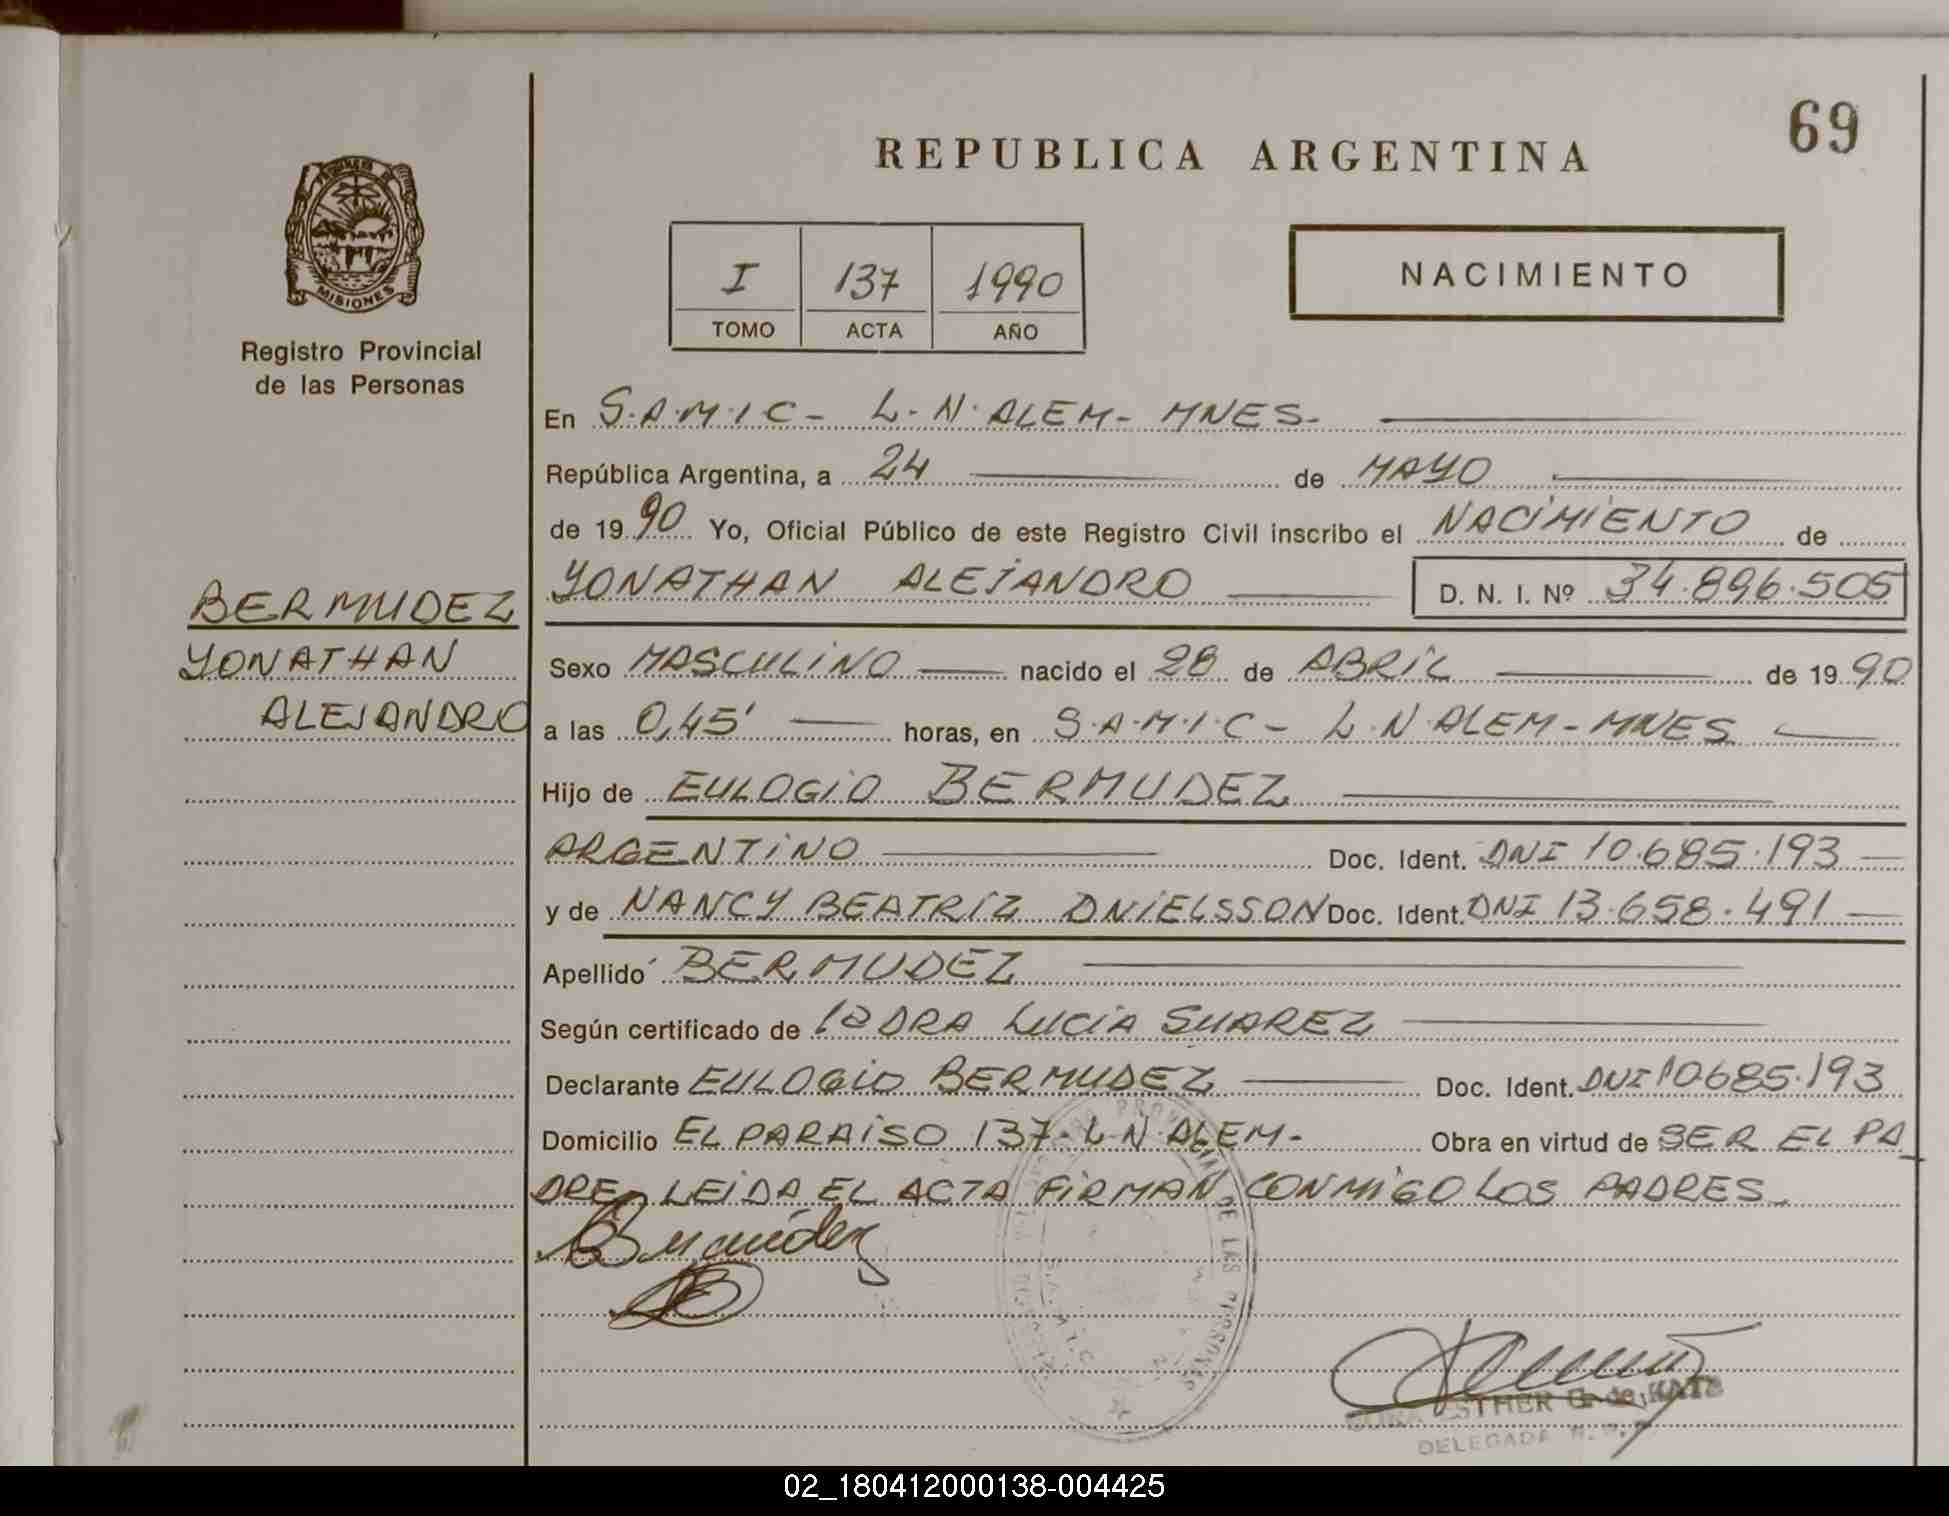 69
REPUBLICA ARGENTINA
MISIONES
Registro Provincial
de las Personas
I 137 1990
TOMO ACTA AÑO
NACIMIENTO
En S.A.M.I.C- L.N.ALEM- MNES-
República Argentina, a 24 de MAYO
de 1990 Yo, Oficial Público de este Registro Civil inscribo el NACIMIENTO de
YONATHAN ALEJANDRO D. N. I. Nº 34.896.505
BERMUDEZ
YONATHAN
ALEJANDRO
Sexo MASCULINO nacido el 28 de ABRIL de 1990
a las 0,45' horas, en S.A.M.I.C- L.N.ALEM-MNES
Hijo de EULOGIO BERMUDEZ
ARGENTINO Doc. Ident. DNI 10.685.193
y de NANCY BEATRIZ DNIELSSON Doc. Ident. DNI 13.658.491
Apellido BERMUDEZ
Según certificado de la DRA LUCIA SUAREZ
Declarante EULOGIO BERMUDEZ Doc. Ident. DNI 10685.193
Domicilio EL PARAISO 137- L N ALEM- Obra en virtud de SER EL PA
DRE, LEIDA EL ACTA FIRMAN CONMIGO LOS PADRES.
Bermúdez
PROVINCIAL DE LAS PERSONAS
S.A.M.I.C.
ESTHER G. de KATZ
DELEGADA
02_180412000138-004425